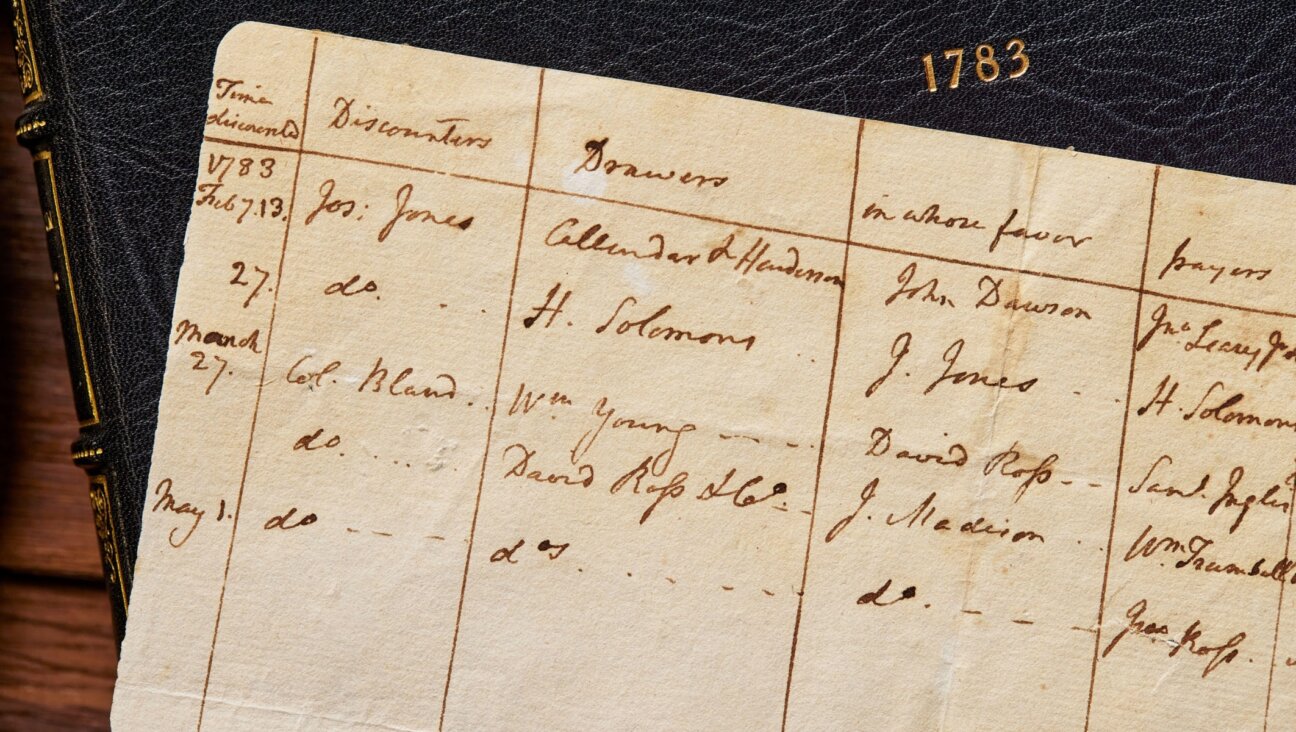 1783
Time discounted Discounters Drawers in whose favor payers
1783
Feb 7.13. Jos: Jones Callendar & Henderson John Dawson Jno Leary Jr
27. do. H. Solomons J. Jones H. Solomons
March
27. Col. Bland Wm Young David Ross Saml. Inglis
do. David Ross & Co. J. Madison Wm Trumbull
May 1. do dos. do. Jno Ross.